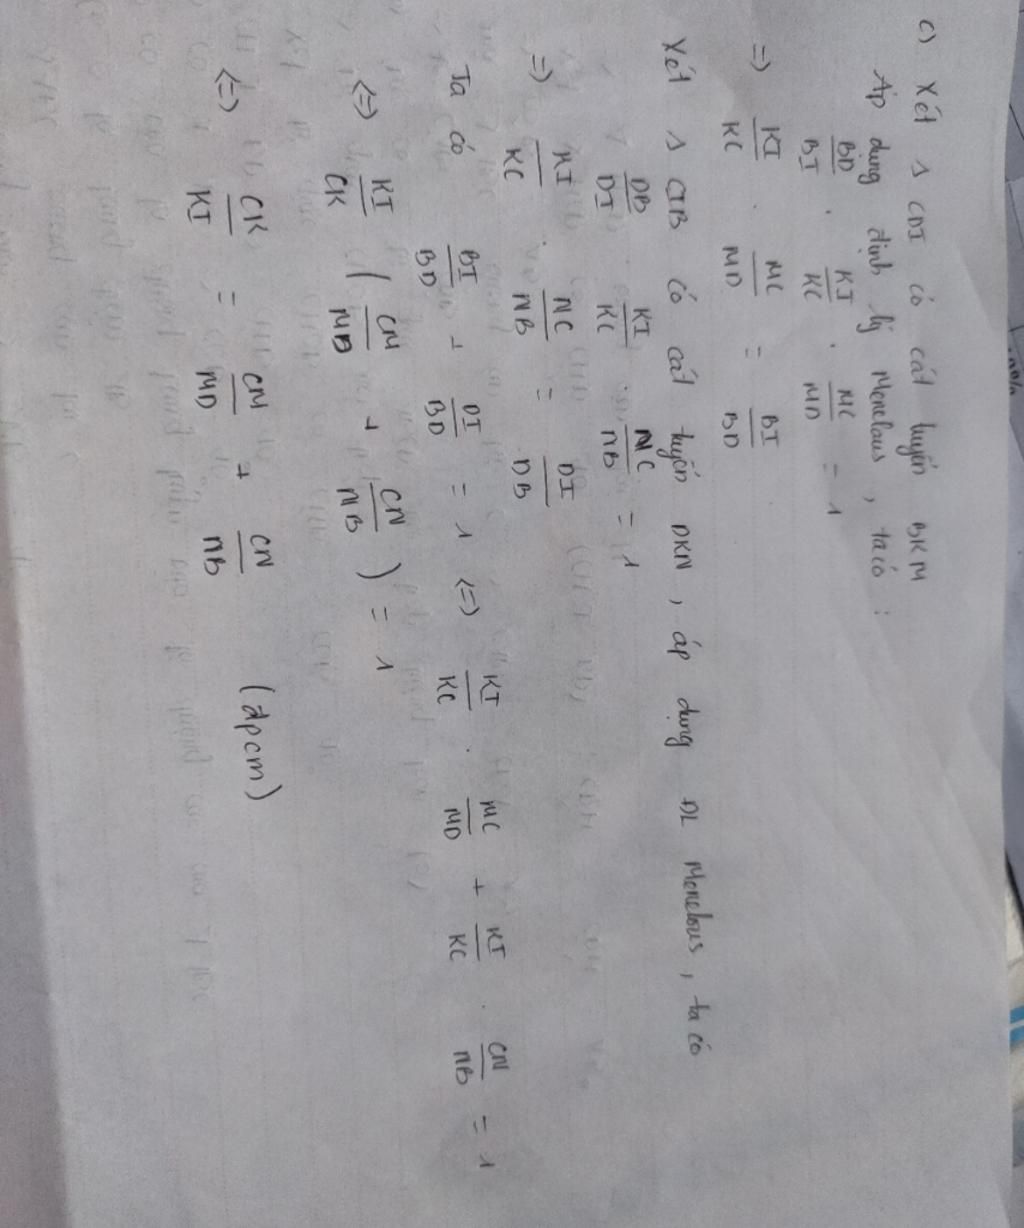 c) Xét Δ CDI có cát tuyến BKM
Áp dụng định lý Menelaus, ta có:
BD/BI . KI/KC . MC/MD = 1
=> KI/KC . MC/MD = BI/BD
Xét Δ CIB có cát tuyến DKN, áp dụng ĐL Menelaus, ta có
DB/DI . KI/KC . NC/NB = 1
=> KI/KC . NC/NB = DI/DB
Ta có BI/BD + DI/BD = 1 <=> KI/KC . MC/MD + KI/KC . CN/NB = 1
<=> KI/CK ( CM/MD + CN/NB ) = 1
<=> CK/KI = CM/MD + CN/NB (đpcm)